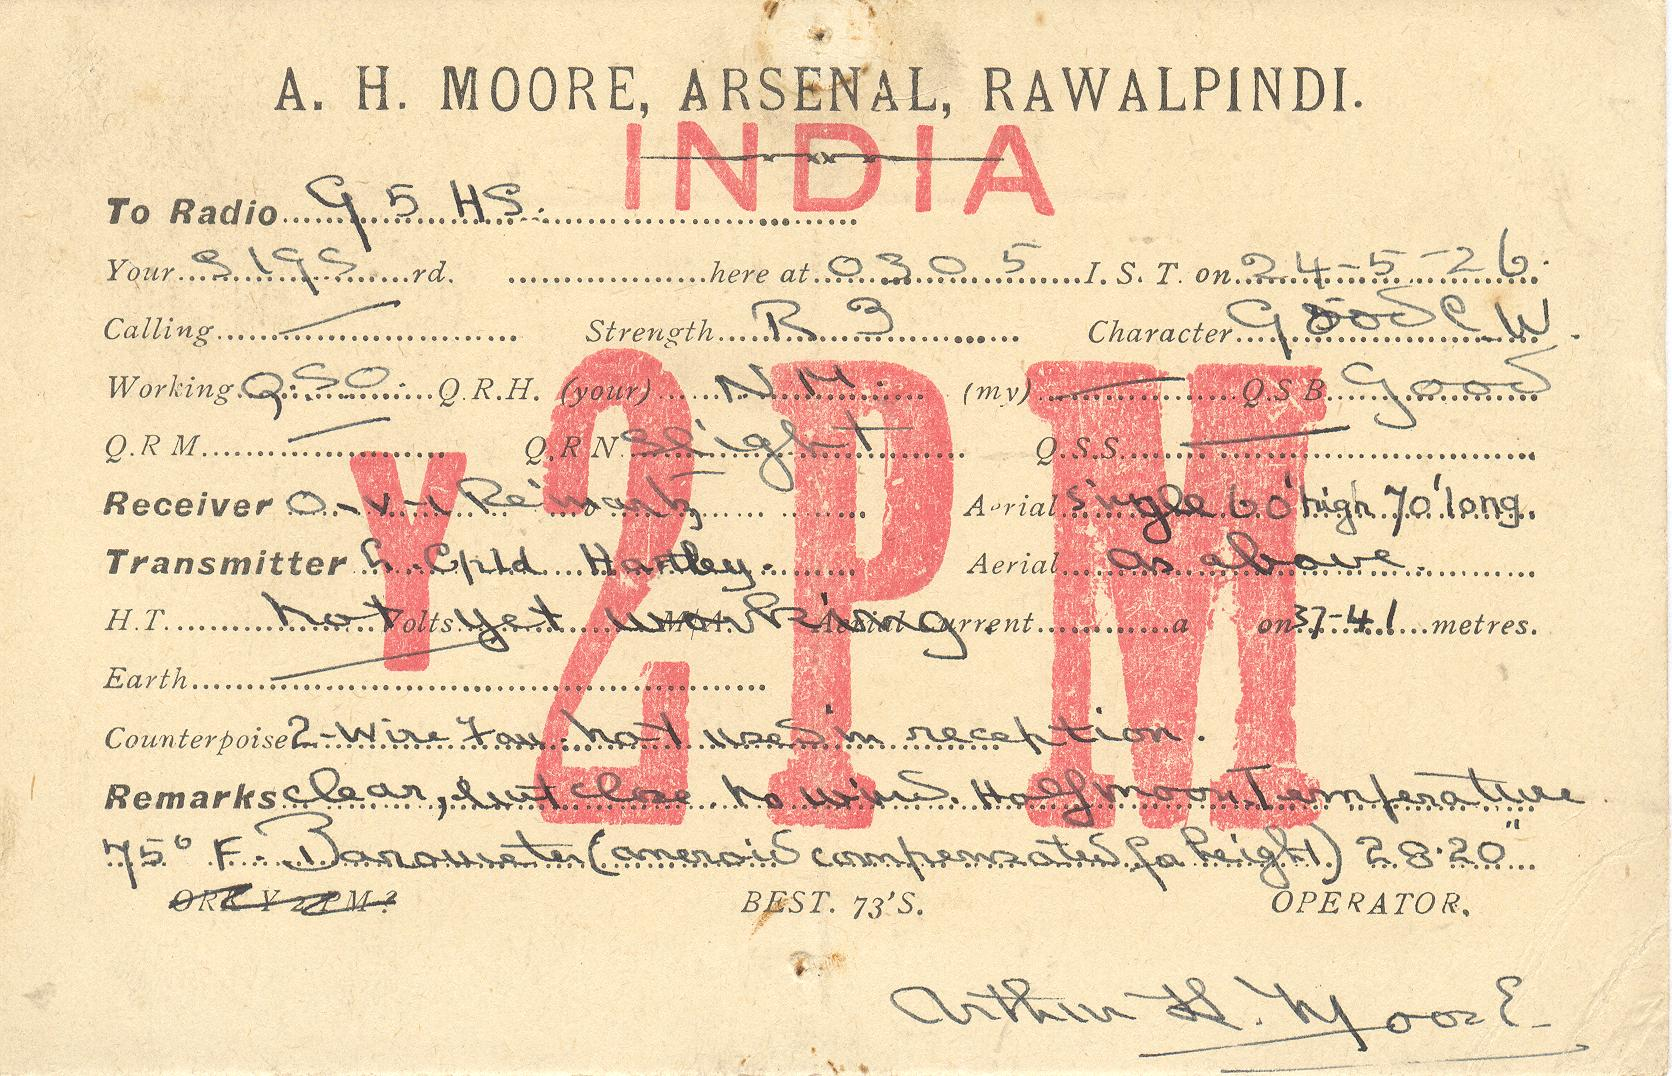 A. H. MOORE, ARSENAL, RAWALPINDI.
INDIA
To Radio G 5 HS.
Your SIGS rd. here at 0305 I. S. T. on 24-5-26.
Calling Strength R 3 Character Good C.W.
Working QSO. Q.R.H. (your) N.M. (my) Q.S.B. Good
Q.R M. Q.R N. Slight Q.S.S.
Receiver O-v-1 Aerial Single 60' high 70' long.
Transmitter L. Cpld Hartley. Aerial As above.
H.T. not Volts yet working M/A. Aerial Current a on 37-41 metres.
Earth
Counterpoise 2-wire Fan. not used in reception.
Remarks clear, but close no wind. Half moon Temperature
75° F. Barometer (aneroid compensated for height) 28.20"
Y2PM
BEST. 73'S. OPERATOR.
Arthur H. Moore